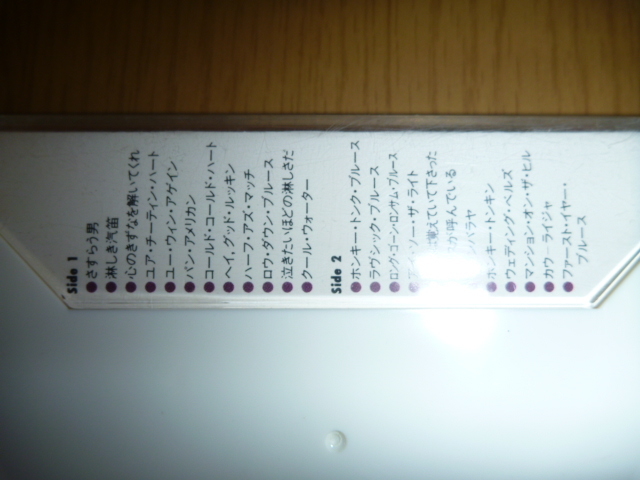 Side 1
●さすらう男
●淋しき汽笛
●心のきずなを解いてくれ
●ユア・チーティン・ハート
●ユー・ウィン・アゲイン
●パン・アメリカン
●コールド・コールド・ハート
●ヘイ, グッド・ルッキン
●ハーフ・アズ・マッチ
●ロウ・ダウン・ブルース
●泣きたいほどの淋しさだ
●クール・ウォーター
Side 2
●ホンキー・トンク・ブルース
●ラヴシック・ブルース
●ロング・ゴーン・ロンサム・ブルース
ソー・ザ・ライト
覚えていて下さった
が呼んでいる
バラヤ
●ホンキー・トンキン
●ウェディング・ベルズ
●マンション・オン・ザ・ヒル
●カウ・ライジャ
●ファースト・イヤー・
ブルース